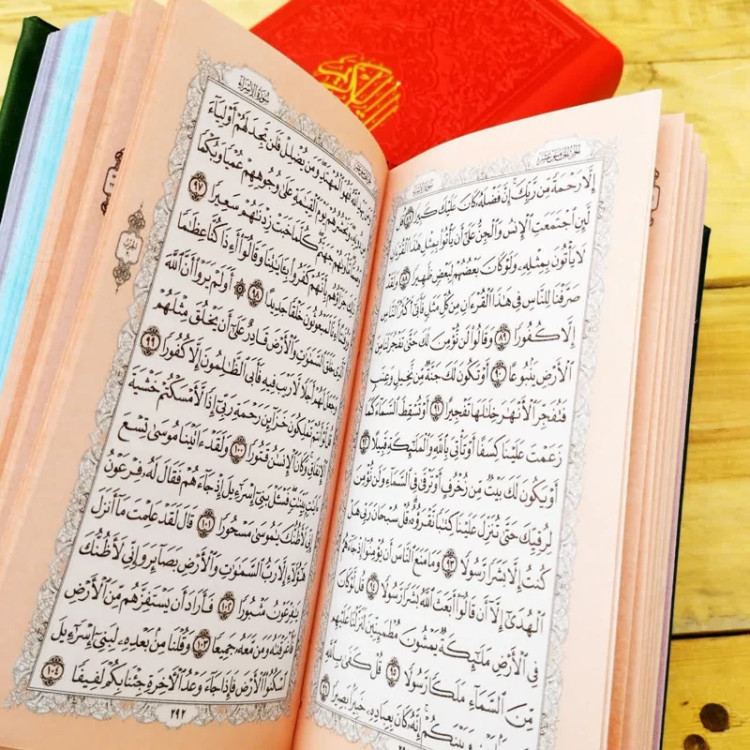 سُورَةُ الإِسۡرَاءِ
إِلَّا رَحۡمَةٗ مِّن رَّبِّكَۚ إِنَّ فَضۡلَهُۥ كَانَ عَلَيۡكَ كَبِيرٗا ٨٧ قُل
لَّئِنِ ٱجۡتَمَعَتِ ٱلۡإِنسُ وَٱلۡجِنُّ عَلَىٰٓ أَن يَأۡتُواْ بِمِثۡلِ هَٰذَا ٱلۡقُرۡءَانِ
لَا يَأۡتُونَ بِمِثۡلِهِۦ وَلَوۡ كَانَ بَعۡضُهُمۡ لِبَعۡضٖ ظَهِيرٗا ٨٨ وَلَقَدۡ
صَرَّفۡنَا لِلنَّاسِ فِي هَٰذَا ٱلۡقُرۡءَانِ مِن كُلِّ مَثَلٖ فَأَبَىٰٓ أَكۡثَرُ ٱلنَّاسِ
إِلَّا كُفُورٗا ٨٩ وَقَالُواْ لَن نُّؤۡمِنَ لَكَ حَتَّىٰ تَفۡجُرَ لَنَا مِنَ
ٱلۡأَرۡضِ يَنۢبُوعًا ٩٠ أَوۡ تَكُونَ لَكَ جَنَّةٞ مِّن نَّخِيلٖ وَعِنَبٖ
فَتُفَجِّرَ ٱلۡأَنۡهَٰرَ خِلَٰلَهَا تَفۡجِيرًا ٩١ أَوۡ تُسۡقِطَ ٱلسَّمَآءَ كَمَا
زَعَمۡتَ عَلَيۡنَا كِسَفًا أَوۡ تَأۡتِيَ بِٱللَّهِ وَٱلۡمَلَٰٓئِكَةِ قَبِيلًا ٩٢
أَوۡ يَكُونَ لَكَ بَيۡتٞ مِّن زُخۡرُفٍ أَوۡ تَرۡقَىٰ فِي ٱلسَّمَآءِ وَلَن نُّؤۡمِنَ
لِرُقِيِّكَ حَتَّىٰ تُنَزِّلَ عَلَيۡنَا كِتَٰبٗا نَّقۡرَؤُهُۥۗ قُلۡ سُبۡحَانَ رَبِّي هَلۡ
كُنتُ إِلَّا بَشَرٗا رَّسُولٗا ٩٣ وَمَا مَنَعَ ٱلنَّاسَ أَن يُؤۡمِنُوٓاْ إِذۡ جَآءَهُمُ
ٱلۡهُدَىٰٓ إِلَّآ أَن قَالُوٓاْ أَبَعَثَ ٱللَّهُ بَشَرٗا رَّسُولٗا ٩٤ قُل لَّوۡ كَانَ
فِي ٱلۡأَرۡضِ مَلَٰٓئِكَةٞ يَمۡشُونَ مُطۡمَئِنِّينَ لَنَزَّلۡنَا عَلَيۡهِم
مِّنَ ٱلسَّمَآءِ مَلَكٗا رَّسُولٗا ٩٥ قُلۡ كَفَىٰ بِٱللَّهِ
بَيۡنَكُمۡۚ إِنَّهُۥ كَانَ بِعِبَادِهِۦ خَبِيرَۢا بَصِيرٗا ٩٦
سُورَةُ الإِسۡرَاءِ
ٱللَّهُ فَهُوَ ٱلۡمُهۡتَدِۖ وَمَن يُضۡلِلۡ فَلَن تَجِدَ لَهُمۡ أَوۡلِيَآءَ
وَنَحۡشُرُهُمۡ يَوۡمَ ٱلۡقِيَٰمَةِ عَلَىٰ وُجُوهِهِمۡ عُمۡيٗا وَبُكۡمٗا
جَهَنَّمُۖ كُلَّمَا خَبَتۡ زِدۡنَٰهُمۡ سَعِيرٗا ٩٧
جَزَآؤُهُم بِأَنَّهُمۡ كَفَرُواْ بِـَٔايَٰتِنَا وَقَالُوٓاْ أَءِذَا كُنَّا عِظَٰمٗا
لَمَبۡعُوثُونَ خَلۡقٗا جَدِيدًا ٩٨ أَوَلَمۡ يَرَوۡاْ أَنَّ ٱللَّهَ
خَلَقَ ٱلسَّمَٰوَٰتِ وَٱلۡأَرۡضَ قَادِرٌ عَلَىٰٓ أَن يَخۡلُقَ مِثۡلَهُمۡ
وَجَعَلَ لَهُمۡ أَجَلٗا لَّا رَيۡبَ فِيهِ فَأَبَى ٱلظَّٰلِمُونَ إِلَّا كُفُورٗا ٩٩
قُل لَّوۡ أَنتُمۡ تَمۡلِكُونَ خَزَآئِنَ رَحۡمَةِ رَبِّيٓ إِذٗا لَّأَمۡسَكۡتُمۡ خَشۡيَةَ
ٱلۡإِنفَاقِۚ وَكَانَ ٱلۡإِنسَٰنُ قَتُورٗا ١٠٠ وَلَقَدۡ ءَاتَيۡنَا مُوسَىٰ تِسۡعَ
ءَايَٰتِۭ بَيِّنَٰتٖۖ فَسۡـَٔلۡ بَنِيٓ إِسۡرَٰٓءِيلَ إِذۡ جَآءَهُمۡ فَقَالَ لَهُۥ فِرۡعَوۡنُ
إِنِّي لَأَظُنُّكَ يَٰمُوسَىٰ مَسۡحُورٗا ١٠١ قَالَ لَقَدۡ عَلِمۡتَ مَآ أَنزَلَ
هَٰٓؤُلَآءِ إِلَّا رَبُّ ٱلسَّمَٰوَٰتِ وَٱلۡأَرۡضِ بَصَآئِرَ وَإِنِّي لَأَظُنُّكَ
يَٰفِرۡعَوۡنُ مَثۡبُورٗا ١٠٢ فَأَرَادَ أَن يَسۡتَفِزَّهُم مِّنَ ٱلۡأَرۡضِ
فَأَغۡرَقۡنَٰهُ وَمَن مَّعَهُۥ جَمِيعٗا ١٠٣ وَقُلۡنَا مِنۢ بَعۡدِهِۦ لِبَنِيٓ إِسۡرَٰٓءِيلَ
ٱسۡكُنُواْ ٱلۡأَرۡضَ فَإِذَا جَآءَ وَعۡدُ ٱلۡأٓخِرَةِ جِئۡنَا بِكُمۡ لَفِيفٗا ١٠٤
٢٩٢